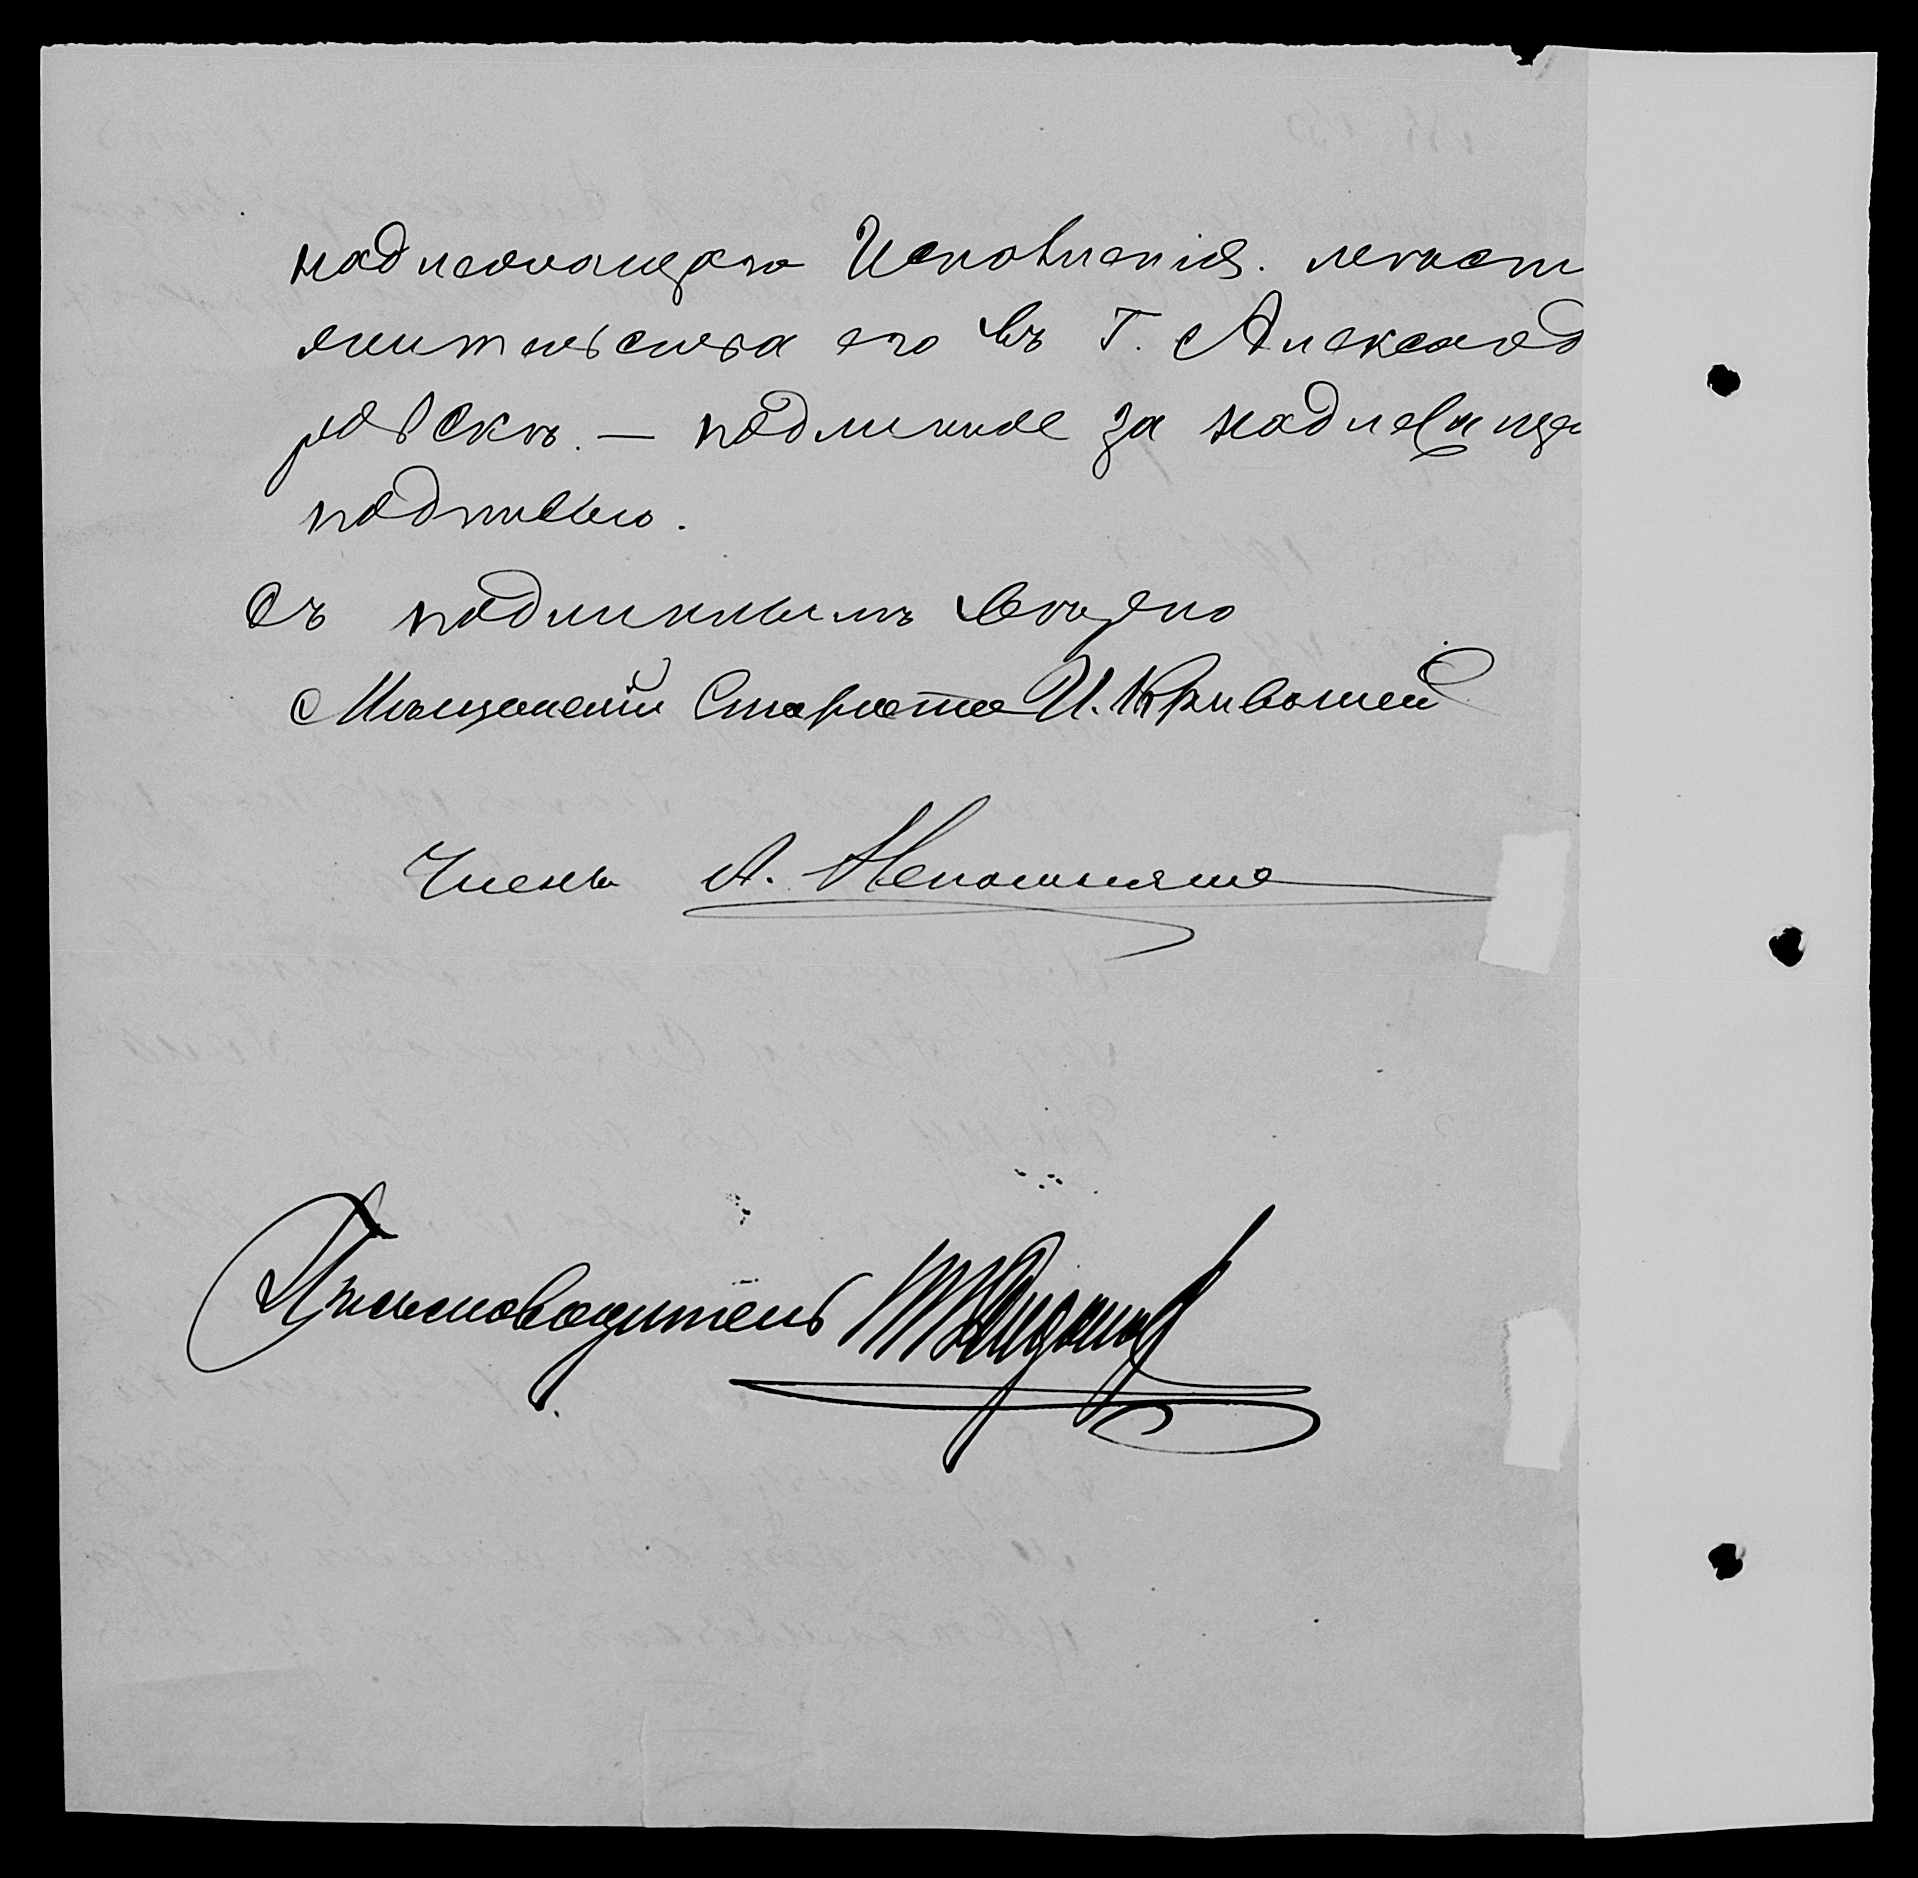 надлежащаго Исполненія. мѣст
жительства его въ Г. Александ
ровскѣ. — подлинное за надлежаще
подписью.
Съ подлиннымъ вѣрно
Мѣщанскій Староста И. Кривошей
Членъ А. Непомняще
Письмоводитель